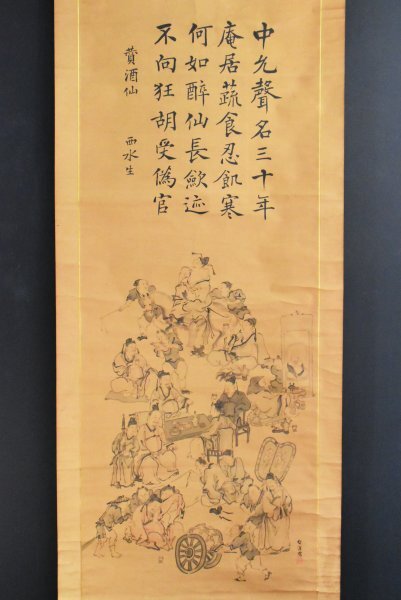 中允聲名三十年
庵居蔬食忍飢寒
何如醉仙長歛迹
不向狂胡受偽官
賛酒仙
西水生